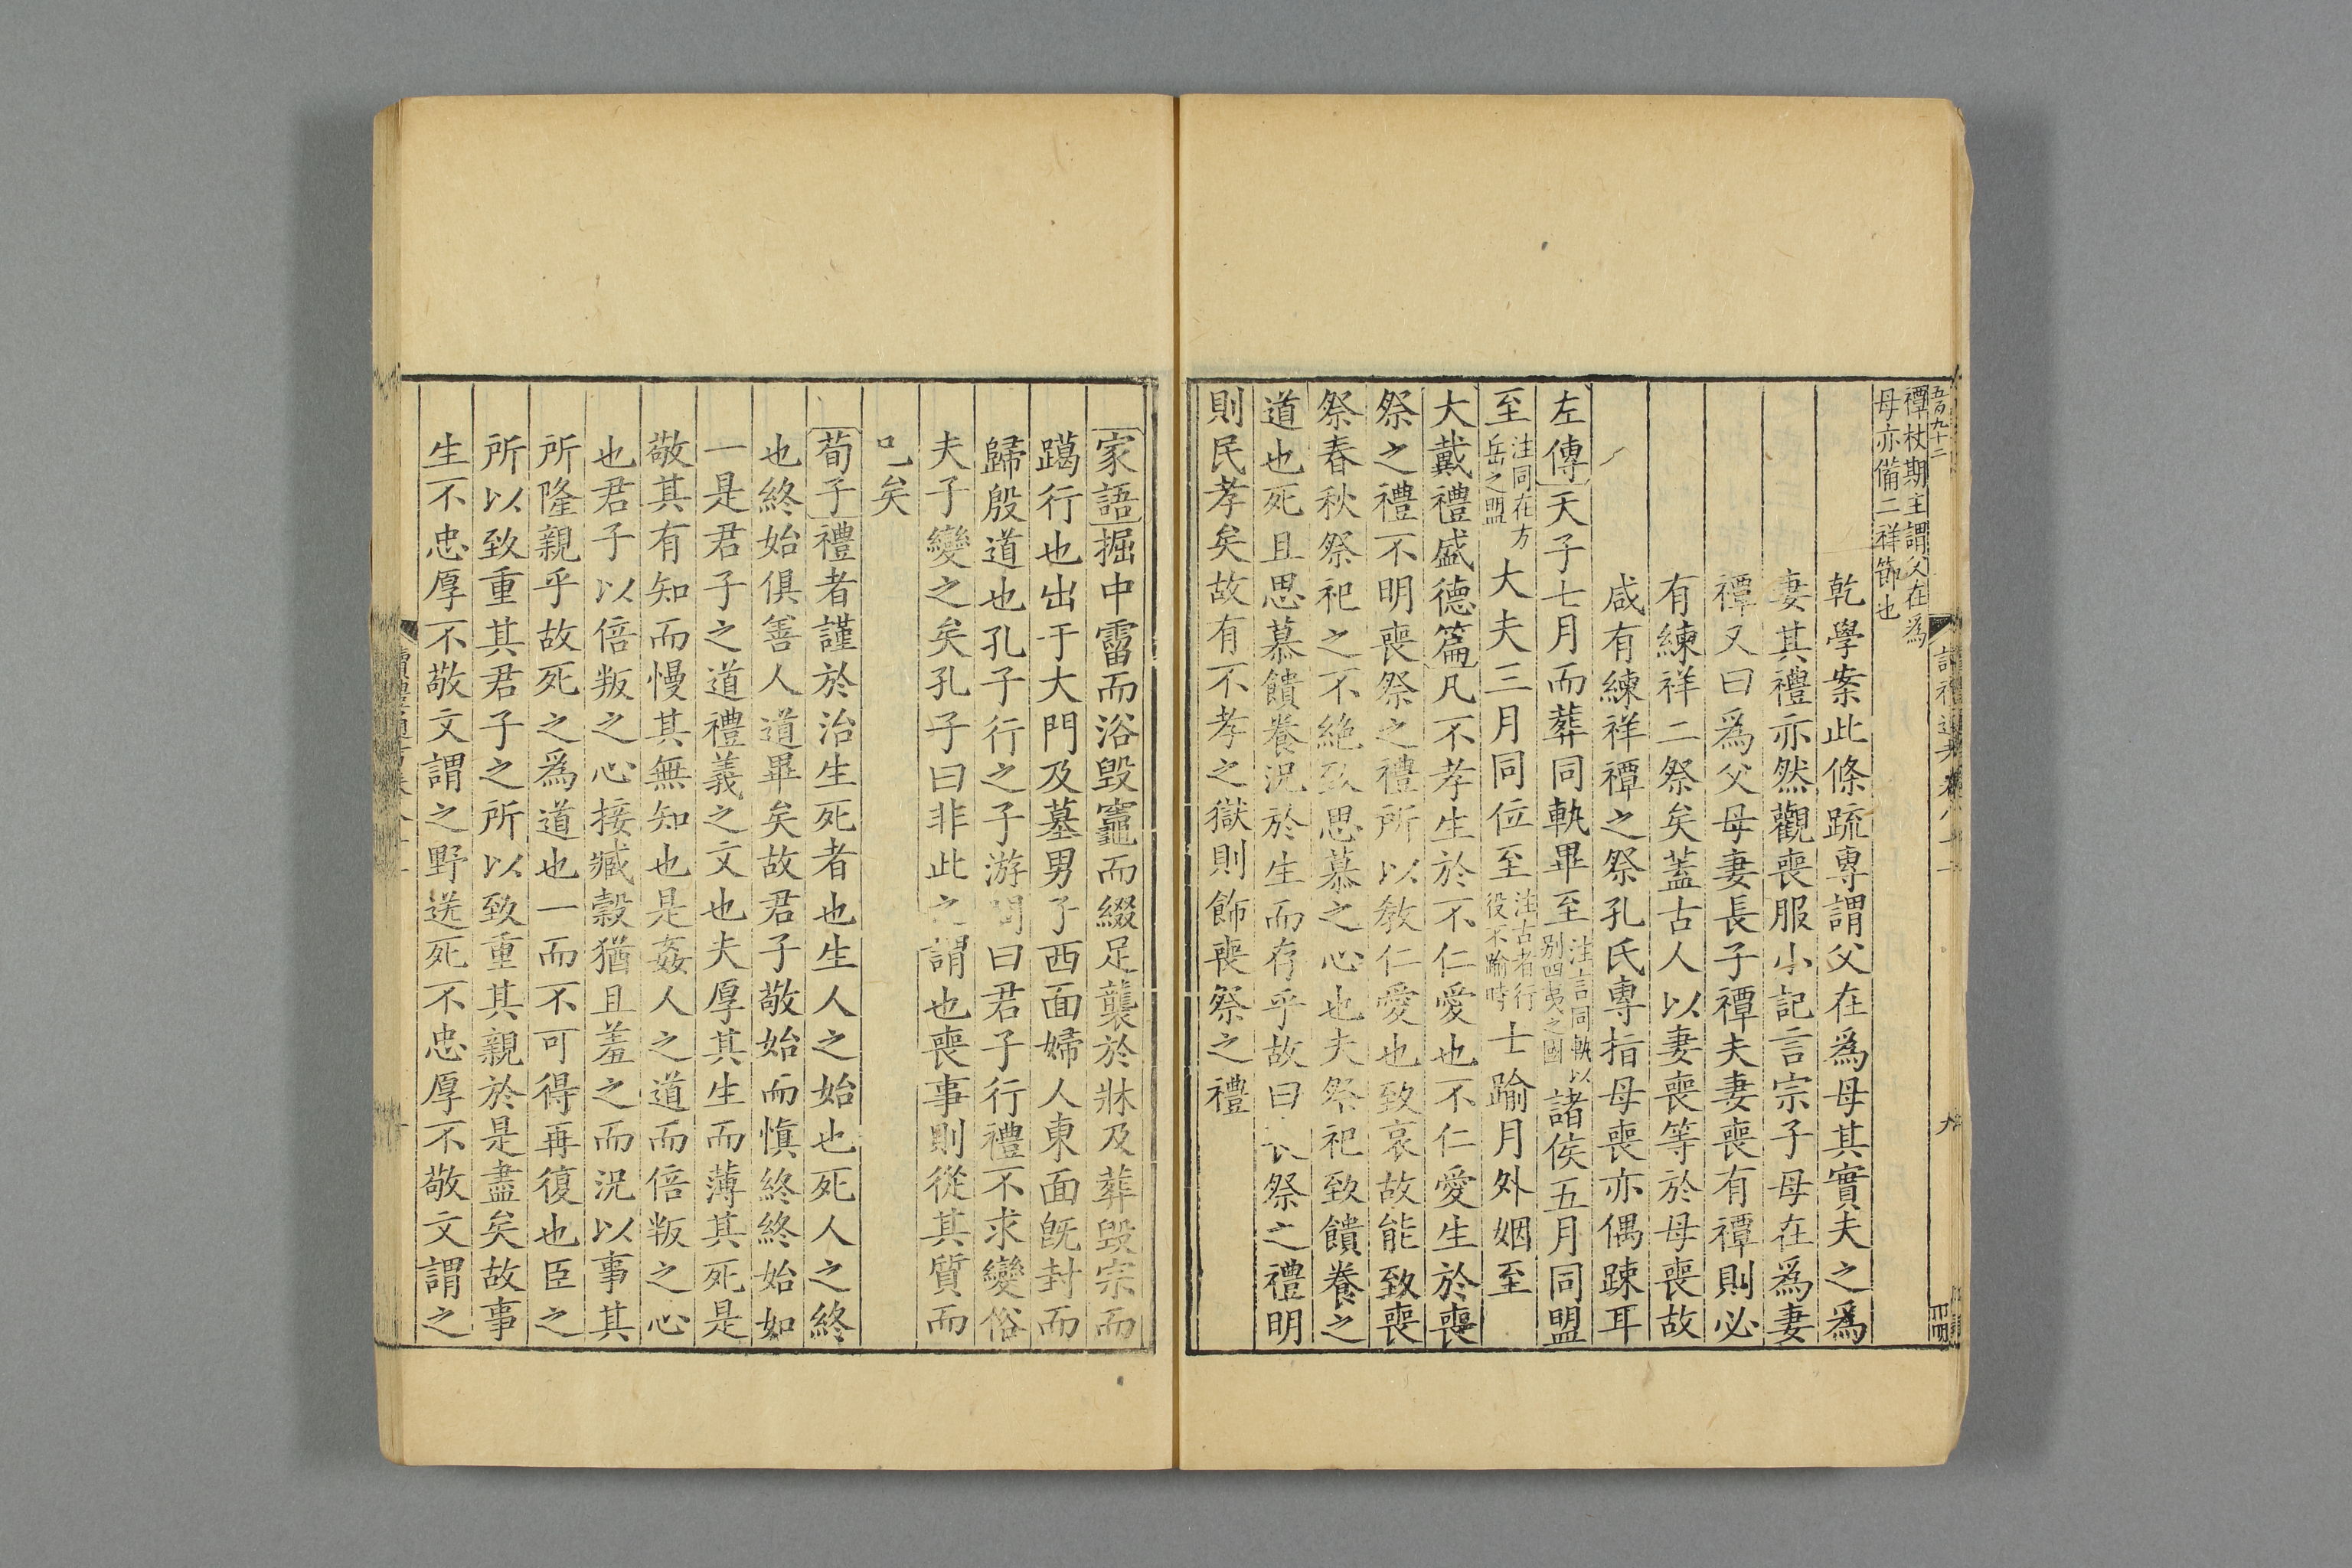 五百九十二
禫杖期主謂父在為
母亦備二祥節也
乾學案此條疏專謂父在爲母其實夫之爲
妻其禮亦然觀喪服小記言宗子母在爲妻
禫又曰爲父母妻長子禫夫妻喪有禫則必
有練祥二祭矣蓋古人以妻喪等於母喪故
咸有練祥禫之祭孔氏專指母喪亦偶踈耳
左傳天子七月而葬同軌畢至注言同軌以別四夷之國諸侯五月同盟
至注同在方岳之盟大夫三月同位至注古者行役不踰時士踰月外姻至
大戴禮盛德篇凡不孝生於不仁愛也不仁愛生於喪
祭之禮不明喪祭之禮所以敎仁愛也致哀故能致喪
祭春秋祭祀之不絶致思慕之心也夫祭祀致饋養之
道也死且思慕饋養況於生而存乎故曰祭之禮明
則民孝矣故有不孝之獄則飾喪祭之禮
家語掘中霤而浴毁竈而綴足襲於牀及葬毁宗而
躐行也出于大門及墓男子西面婦人東面旣封而
歸殷道也孔子行之子游問曰君子行禮不求變俗
夫子變之矣孔子曰非此之謂也喪事則從其質而
已矣
荀子禮者謹於治生死者也生人之始也死人之終
也終始俱善人道畢矣故君子敬始而愼終終始如
一是君子之道禮義之文也夫厚其生而薄其死是
敬其有知而慢其無知也是姦人之道而倍叛之心
也君子以倍叛之心接臧穀猶且羞之而況以事其
所隆親乎故死之爲道也一而不可得再復也臣之
所以致重其君子之所以致重其親於是盡矣故事
生不忠厚不敬文謂之野送死不忠厚不敬文謂之